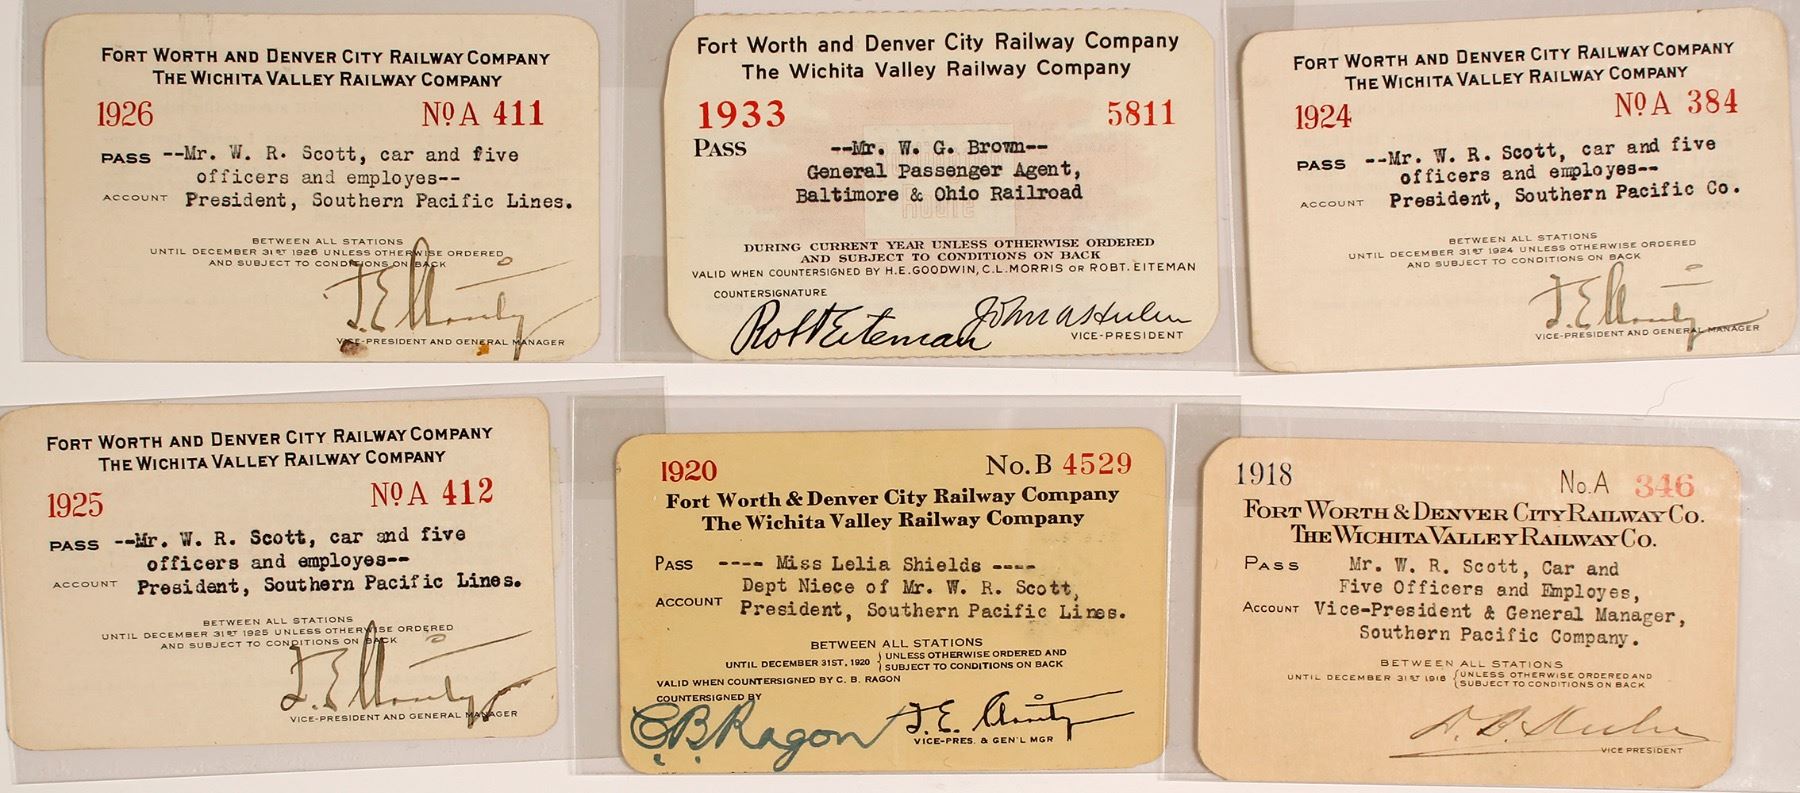 FORT WORTH AND DENVER CITY RAILWAY COMPANY
THE WICHITA VALLEY RAILWAY COMPANY
1926 No A 411
PASS --Mr. W. R. Scott, car and five
officers and employes--
ACCOUNT President, Southern Pacific Lines.
BETWEEN ALL STATIONS
UNTIL DECEMBER 31ST 1926 UNLESS OTHERWISE ORDERED
AND SUBJECT TO CONDITIONS ON BACK
VICE-PRESIDENT AND GENERAL MANAGER
Fort Worth and Denver City Railway Company
The Wichita Valley Railway Company
1933 5811
PASS --Mr. W. G. Brown--
General Passenger Agent,
Baltimore & Ohio Railroad
DURING CURRENT YEAR UNLESS OTHERWISE ORDERED
AND SUBJECT TO CONDITIONS ON BACK
VALID WHEN COUNTERSIGNED BY H.E. GOODWIN, C.L. MORRIS OR ROBT. EITEMAN
COUNTERSIGNATURE
Robt Eiteman John A Hulen
VICE-PRESIDENT
FORT WORTH AND DENVER CITY RAILWAY COMPANY
THE WICHITA VALLEY RAILWAY COMPANY
1924 No A 384
PASS --Mr. W. R. Scott, car and five
officers and employes--
ACCOUNT President, Southern Pacific Co.
BETWEEN ALL STATIONS
UNTIL DECEMBER 31ST 1924 UNLESS OTHERWISE ORDERED
AND SUBJECT TO CONDITIONS ON BACK
VICE-PRESIDENT AND GENERAL MANAGER
FORT WORTH AND DENVER CITY RAILWAY COMPANY
THE WICHITA VALLEY RAILWAY COMPANY
1925 No A 412
PASS --Mr. W. R. Scott, car and five
officers and employes--
ACCOUNT President, Southern Pacific Lines.
BETWEEN ALL STATIONS
UNTIL DECEMBER 31ST 1925 UNLESS OTHERWISE ORDERED
AND SUBJECT TO CONDITIONS ON BACK
VICE-PRESIDENT AND GENERAL MANAGER
1920 No. B 4529
Fort Worth & Denver City Railway Company
The Wichita Valley Railway Company
PASS ---- Miss Lelia Shields ----
Dept Niece of Mr. W. R. Scott,
ACCOUNT President, Southern Pacific Lines.
BETWEEN ALL STATIONS
UNTIL DECEMBER 31ST, 1920 { UNLESS OTHERWISE ORDERED AND
SUBJECT TO CONDITIONS ON BACK
VALID WHEN COUNTERSIGNED BY C. B. RAGON
COUNTERSIGNED BY
C B Ragon
VICE-PRES. & GEN'L MGR
1918 No. A 346
FORT WORTH & DENVER CITY RAILWAY CO.
THE WICHITA VALLEY RAILWAY CO.
PASS Mr. W. R. Scott, Car and
Five Officers and Employes,
ACCOUNT Vice-President & General Manager,
Southern Pacific Company.
BETWEEN ALL STATIONS
UNTIL DECEMBER 31ST 1918 { UNLESS OTHERWISE ORDERED AND
SUBJECT TO CONDITIONS ON BACK
VICE PRESIDENT